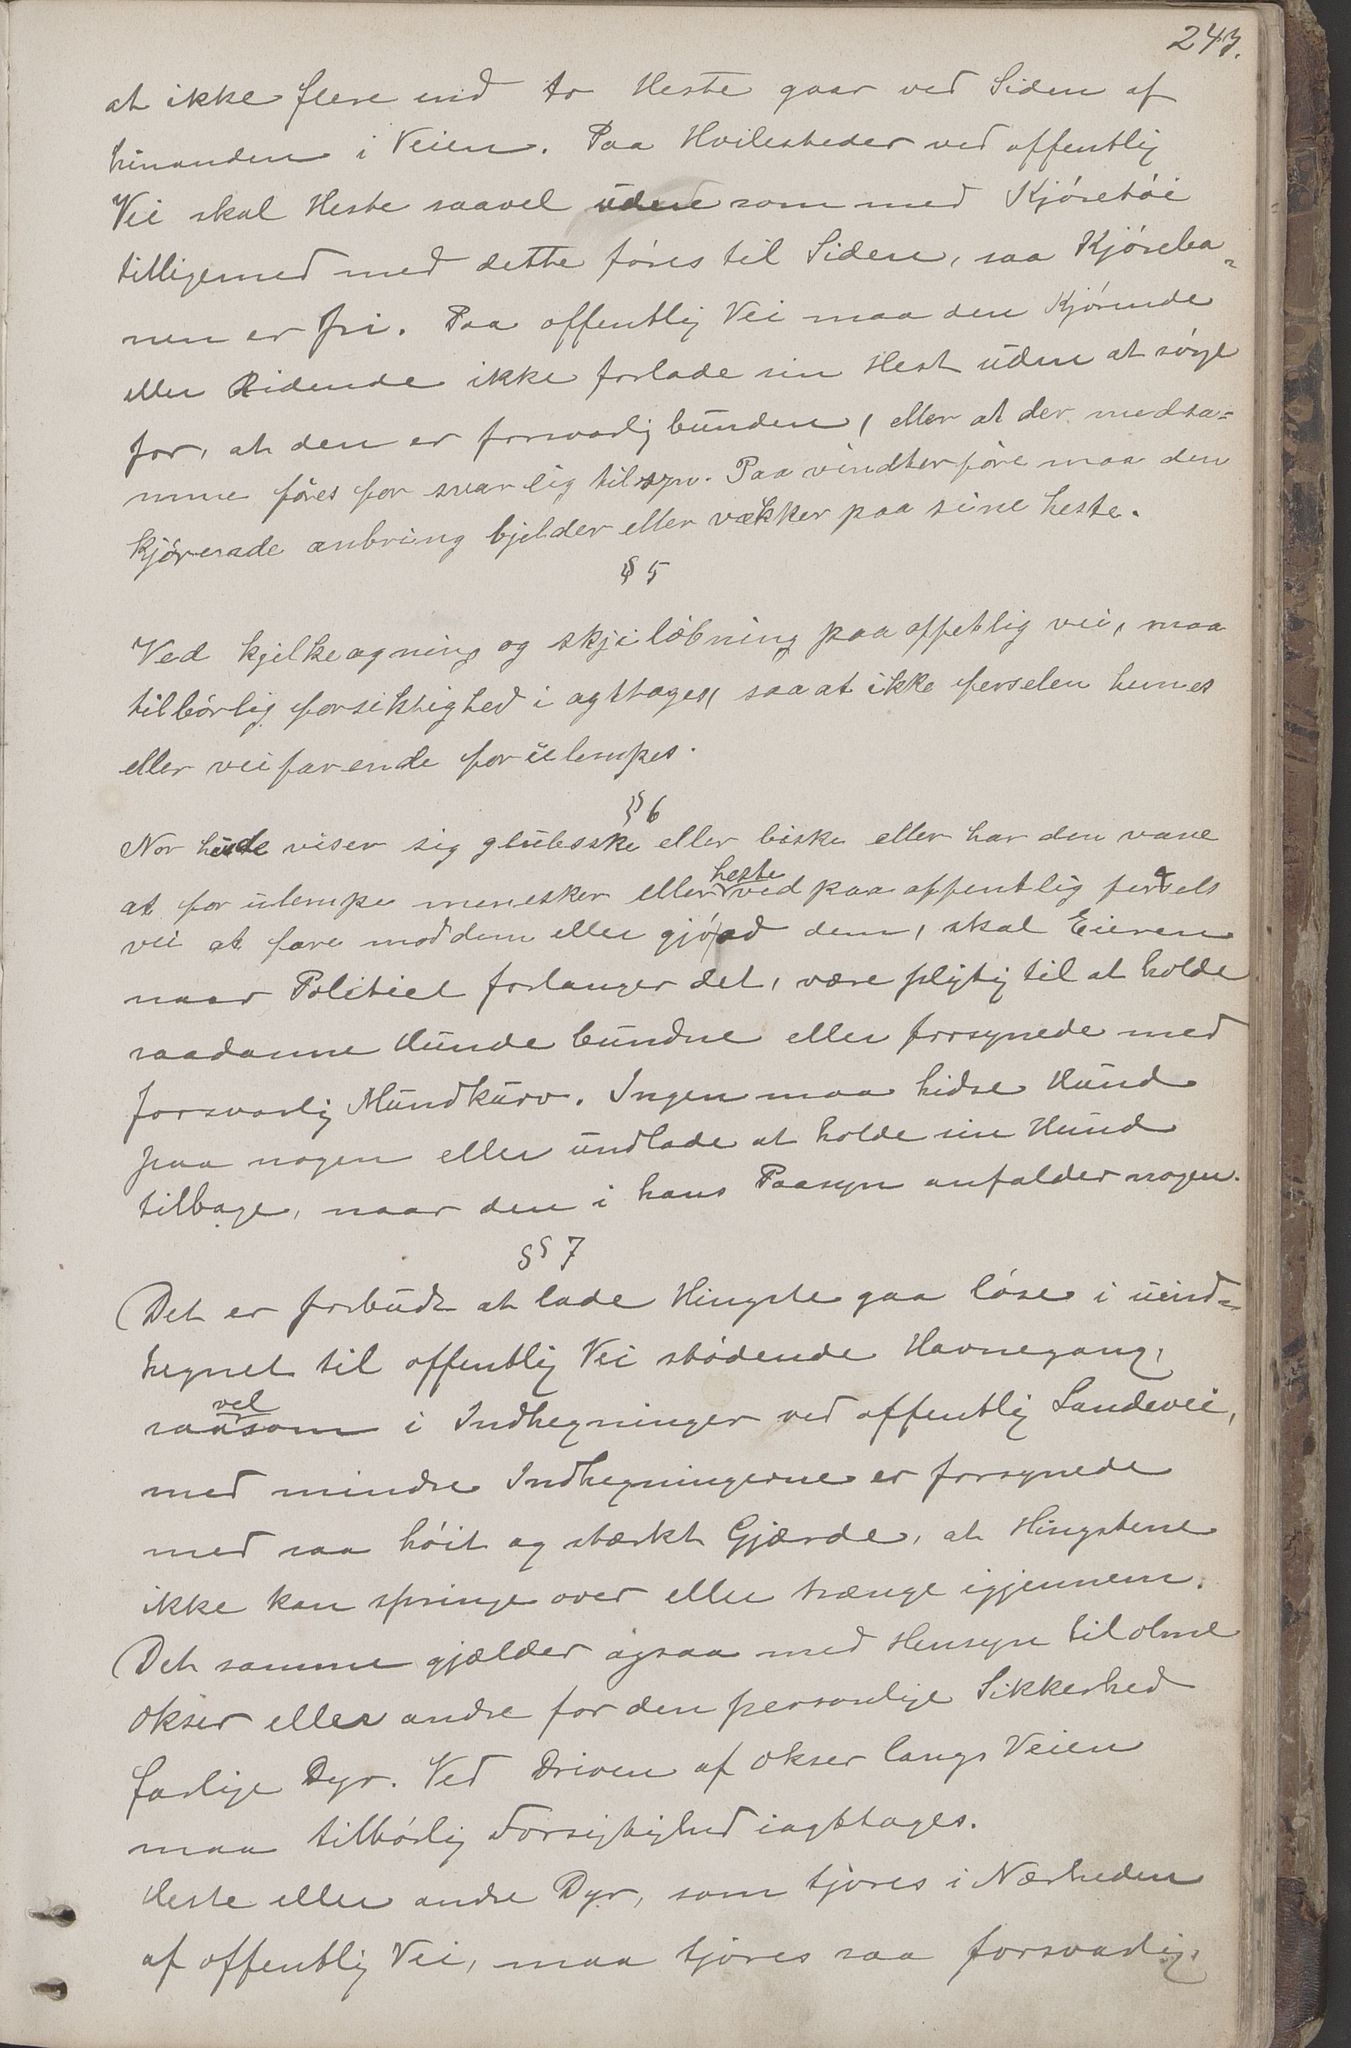 243.
at ikke flere end to Heste gaar ved Siden af
hinanden i Veien. Paa Hvilesteder ved offentlig
Vei skal Heste saavel uden som med Kjøretøi
tilligemed med dette føres til Siden, saa Kjøreba-
nen er fri. Paa offentlig Vei maa den Kjørende
eller Ridende ikke forlade sin Hest uden at sørge
for, at den er forsvarlig bunden, eller at der medsa=
mme føres for svarlig tilsyn. Paa vindterføre maa den
kjørende anbring bjelder eller vækker paa sine heste.
§ 5
Ved kjelkeagning og skjiløbning paa offetlig vei, maa
tilbørlig forsiktighed i agttages, saa at ikke ferselen hemes
eller veifarende for ulempes.
§ 6
Nor hunde viser sig glubsske eller biske eller har den vane
at for ulempe menesker eller heste ved paa offentlig fersels
vei at fare mod dem eller gjø ad dem, skal Eieren
naar Politiet forlanger det, være pligtig til at holde
saadanne Hunde bundne eller forsynede med
forsvarlig Mundkurv. Ingen maa hidse Hund
paa nogen eller undlade at holde sin Hund
tilbage, naar den i hans Paasyn anfalder nogen.
§§ 7
Det er forbudt at lade Hingste gaa løse i uind-
hegnet til offentlig Vei stødende Havnegang,
saavel som i Indhegninger ved offentlig Landevei,
med mindre Indhegningerne er forsynede
med saa høit og stærkt Gjærde, at Hingstene
ikke kan springe over eller trænge igjennem.
Det samme gjælder ogsaa med Hensyn til olme
Okser eller andre for den personlige Sikkerhed
farlige Dyr. Ved Driven af Okser langs Veien
maa tilbørlig Forsigtighed iagttages.
Heste eller andre Dyr, som tjores i Nærheden
af offentlig Vei, maa tjores saa forsvarlig,